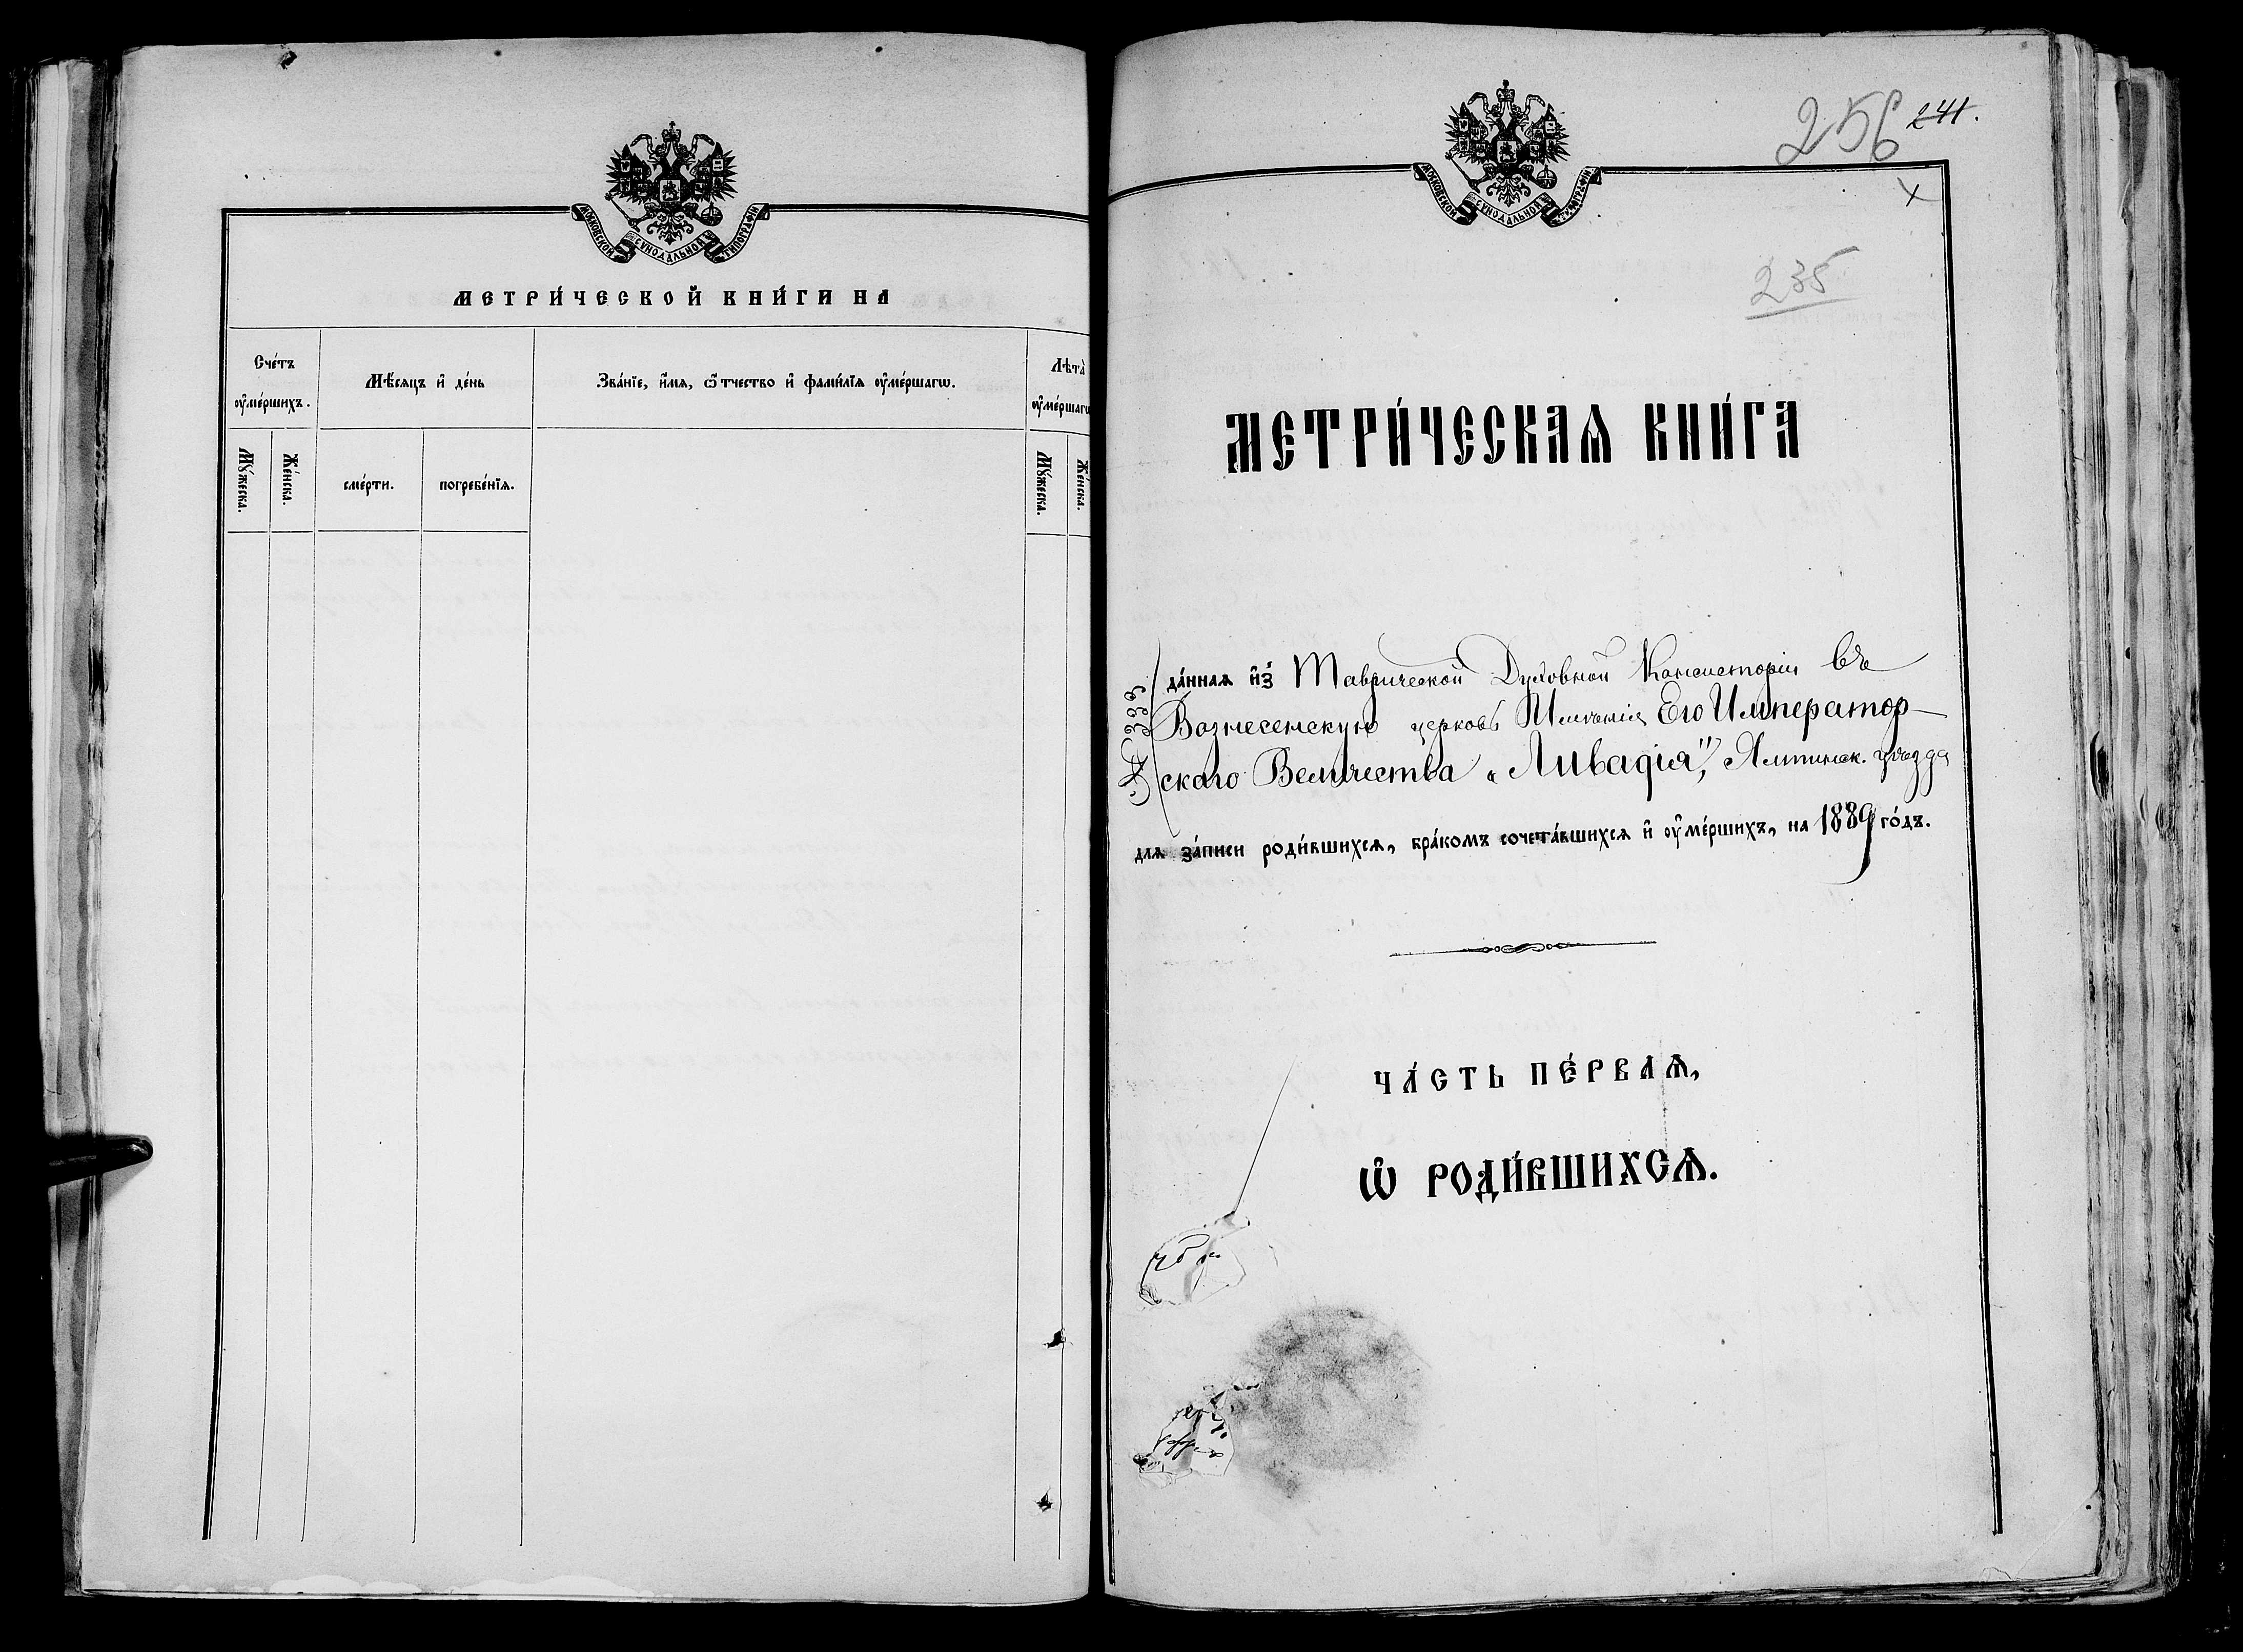 МОСКОВСКОЙ СѴНОДАЛЬНОЙ ТИПОГРАФІИ
МЕТРИ́ЧЕСКОЙ КНИ́ГИ НА
Сче́тъ ᲂу҆ме́ршихъ.
Мѣ́сяцъ и҆ де́нь
Зва́нїе, и҆́мѧ, ѻ҆́тчество и҆ фами́лїѧ ᲂу҆ме́ршагѡ.
Лѣта̀ ᲂу҆ме́ршагѡ
Мꙋ́жеска.
Же́нска.
сме́рти.
погребе́нїѧ.
Мꙋ́жеска.
Же́нска.
МОСКОВСКОЙ СѴНОДАЛЬНОЙ ТИПОГРАФІИ
256 241.
235
МЕТРИ́ЧЕСКАѦ КНИ́ГА
да́ннаѧ и҆з̾ Таврической Духовной Консисторіи въ
Вознесенскую церковь Имѣнія Его Император-
скаго Величества „Ливадія", Ялтинск. уѣзда
№ 3333
длѧ за́писи роди́вшихсѧ, бра́комъ сочета́вшихсѧ и҆ ᲂу҆ме́ршихъ, на 1889 го́дъ.
ЧА́СТЬ ПЕ́РВАѦ,
Ѡ҆ РОДИ́ВШИХСѦ.